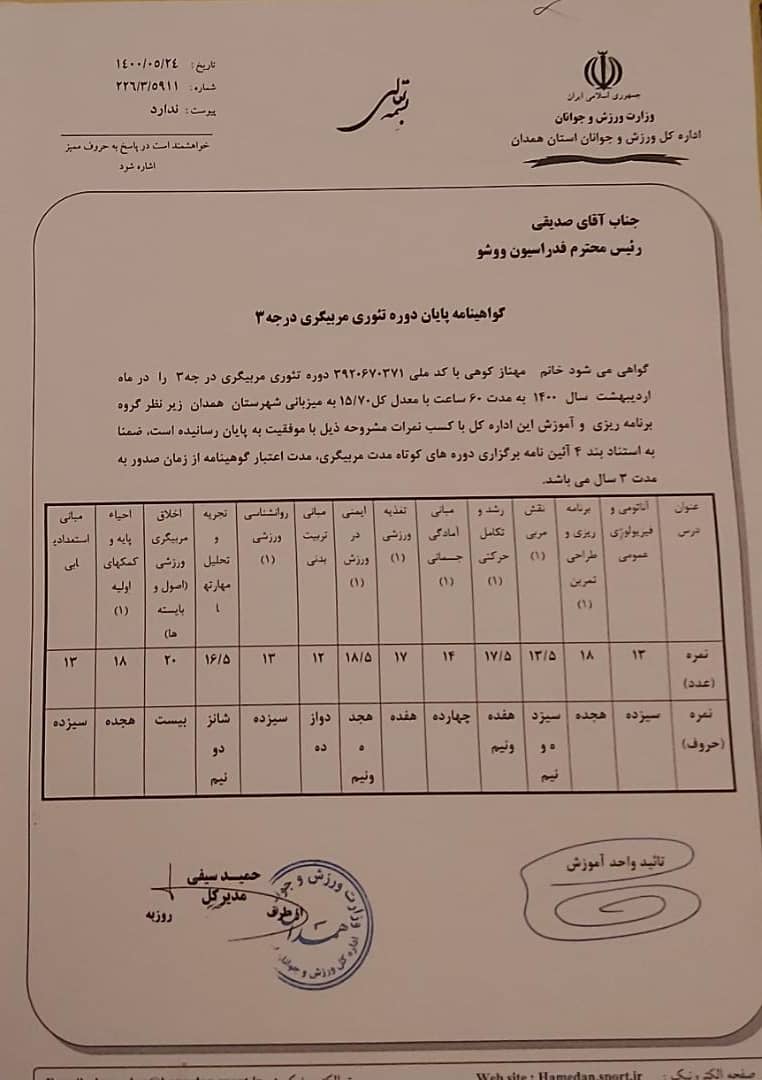 جمهوری اسلامی ایران
وزارت ورزش و جوانان
اداره کل ورزش و جوانان استان همدان
بسمه تعالی
تاریخ: ۱۴۰۰/۰۵/۲۴
شماره: ۲۲۶/۳/۵۹۱۱
پیوست: ندارد
خواهشمند است در پاسخ به حروف ممیز
اشاره شود
جناب آقای صدیقی
رئیس محترم فدراسیون ووشو
گواهینامه پایان دوره تئوری مربیگری درجه ۳
گواهی می شود خانم مهناز کوهی با کد ملی ۳۹۲۰۶۷۰۳۷۱ دوره تئوری مربیگری در جه۳ را در ماه
اردیبهشت سال ۱۴۰۰ به مدت ۶۰ ساعت با معدل کل۱۵/۷۰ به میزبانی شهرستان همدان زیر نظر گروه
برنامه ریزی و آموزش این اداره کل با کسب نمرات مشروحه ذیل با موفقیت به پایان رسانیده است، ضمنا
به استناد بند ۴ آئین نامه برگزاری دوره های کوتاه مدت مربیگری، مدت اعتبار گوهینامه از زمان صدور به
مدت ۳ سال می باشد.
عنوان درس
آناتومی و فیزیولوژی عمومی
برنامه ریزی و طراحی تمرین (۱)
نقش مربی (۱)
رشد و تکامل حرکتی (۱)
مبانی آمادگی جسمانی (۱)
تغذیه ورزشی (۱)
ایمنی در ورزش (۱)
مبانی تربیت بدنی
روانشناسی ورزشی (۱)
تجزیه و تحلیل مهارتها
اخلاق مربیگری ورزشی (اصول و بایسته ها)
احیاء پایه و کمکهای اولیه (۱)
مبانی استعدادیابی
نمره (عدد) ۱۳ ۱۸ ۱۳/۵ ۱۷/۵ ۱۴ ۱۷ ۱۸/۵ ۱۲ ۱۳ ۱۶/۵ ۲۰ ۱۸ ۱۳
نمره (حروف) سیزده هجده سیزده و نیم هفده ونیم چهارده هفده هجده ونیم دوازده سیزده شانزدو نیم بیست هجده سیزده
تائید واحد آموزش
حمید سیفی
مدیرکل
از طرف
روزبه
وزارت ورزش و جوانان
اداره کل ورزش و جوانان
همدان
صفحه الکترونیکی: Web site : Hamedan.sport.ir